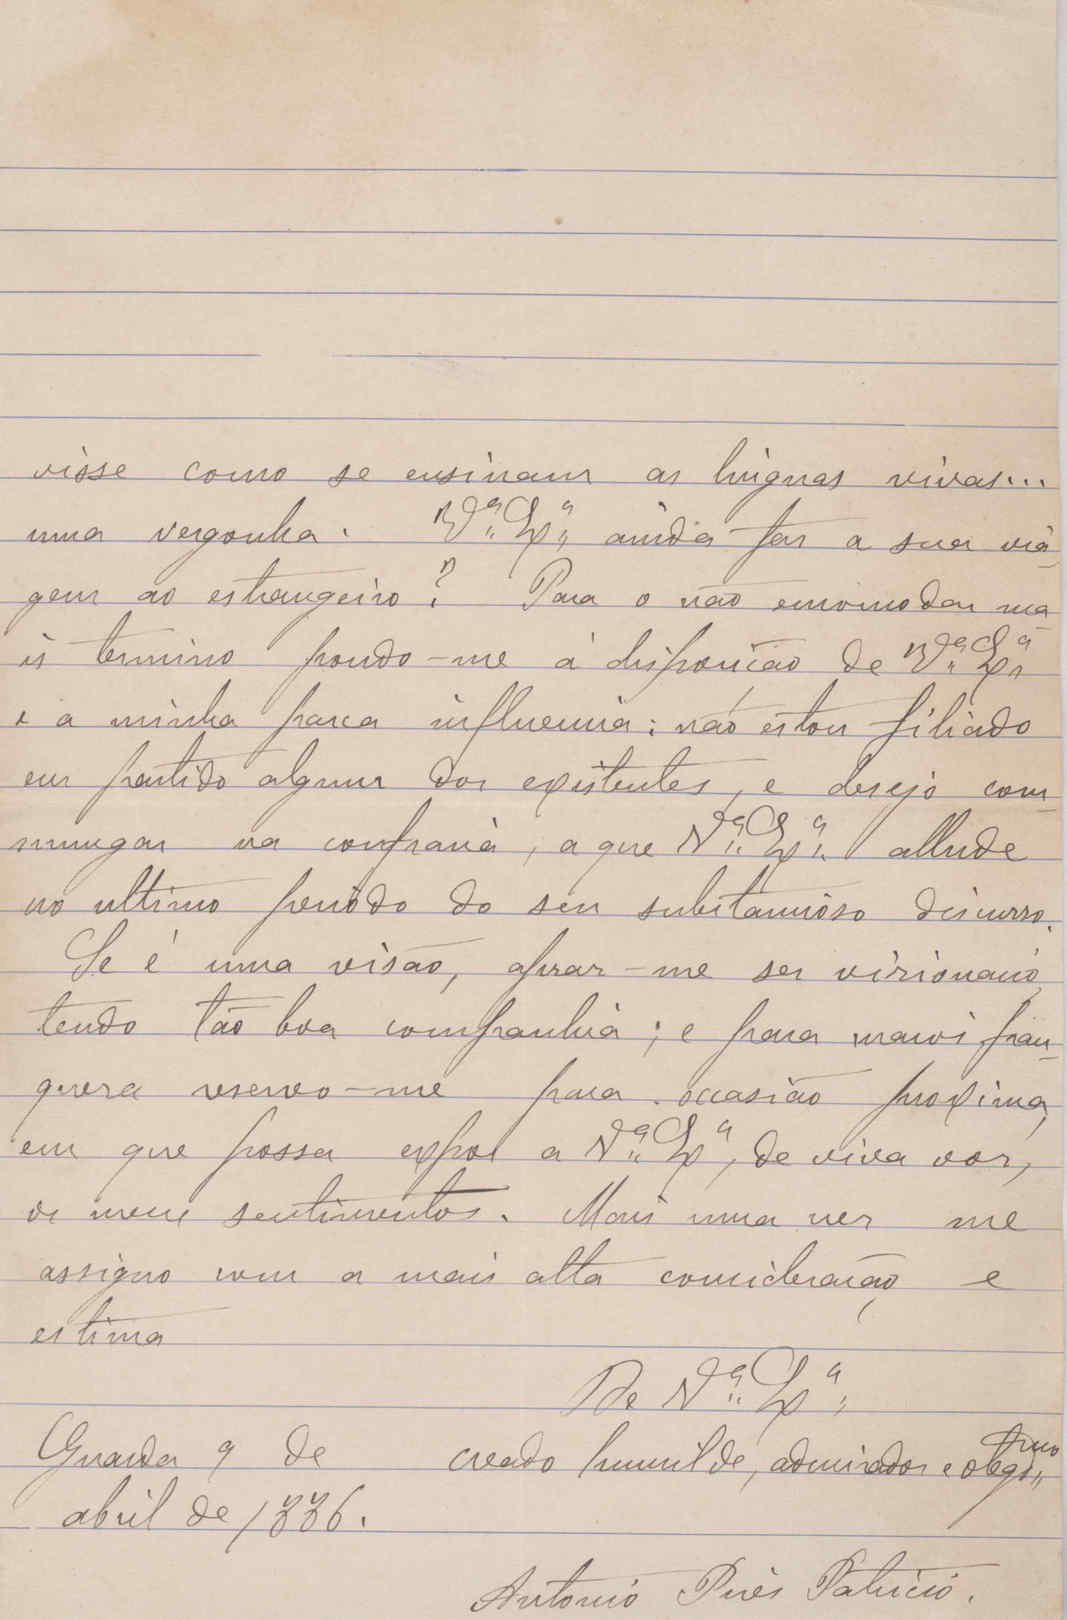 visse como se ensinam as linguas vivas...
uma vergonha. V.ª S.ª ainda faz a sua via-
gem ao estrangeiro? Para o não encomodar ma-
is termino pondo-me á disposição de V.ª S.ª
e a minha parca influencia; não estou filiado
em partido algum dos existentes, e desejo com-
mungar na confraria, a que V.ª S.ª allude
no ultimo periodo do seu substancioso discurso.
Se é uma visão, apraz-me ser visionario,
tendo tão boa companhia; e para maior fran-
queza reservo-me para occasião proxima,
em que possa expor a V.ª S.ª, de viva voz,
os meus sentimentos. Mais uma vez me
assigno com a mais alta consideração e
estima
De V.ª S.ª,
Guarda 9 de creado humilde, admirador e obgd.mo
abril de 1886.
Antonio Pires Patricio.